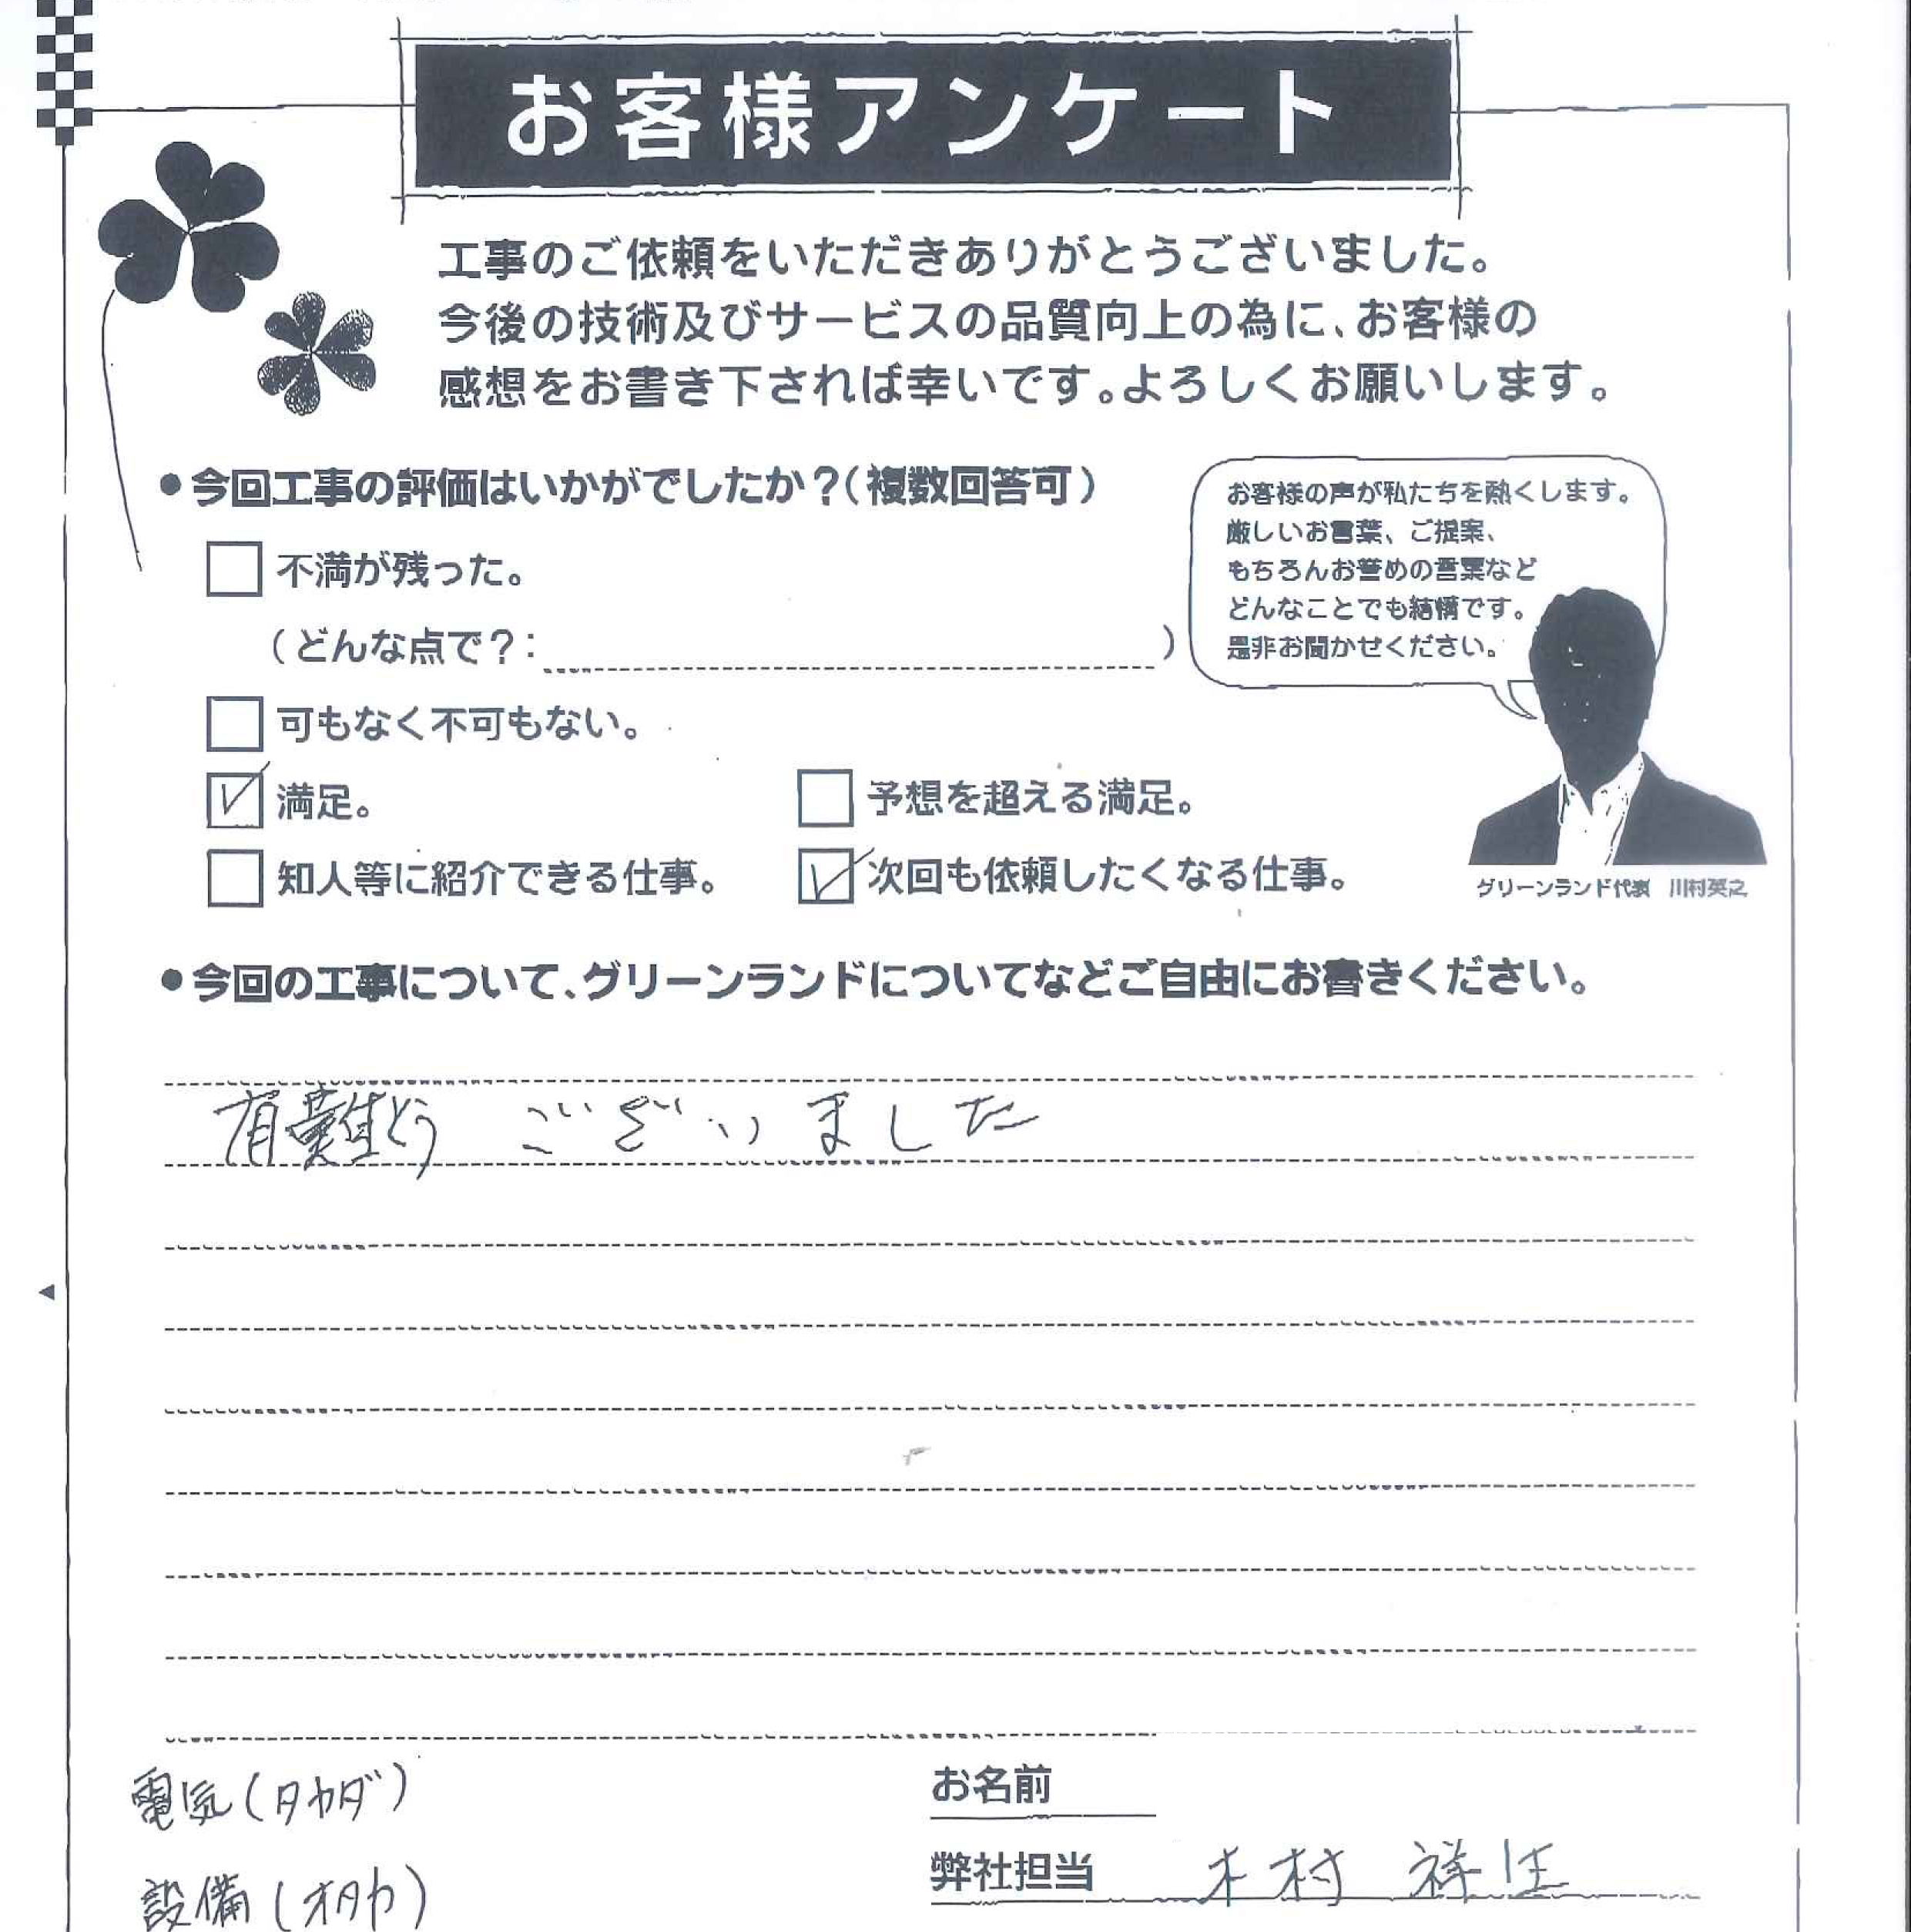 お客様アンケート
工事のご依頼をいただきありがとうございました。
今後の技術及びサービスの品質向上の為に、お客様の
感想をお書き下されば幸いです。よろしくお願いします。
●今回工事の評価はいかがでしたか?(複数回答可)
不満が残った。
(どんな点で?: )
可もなく不可もない。
満足。
予想を超える満足。
知人等に紹介できる仕事。
次回も依頼したくなる仕事。
お客様の声が私たちを熱くします。
厳しいお言葉、ご提案、
もちろんお誉めの言葉など
どんなことでも結構です。
是非お聞かせください。
グリーンランド代表 川村英之
●今回の工事について、グリーンランドについてなどご自由にお書きください。
有難どう ございました
電気(タカダ)
設備(オタカ)
お名前
弊社担当 木村 祥